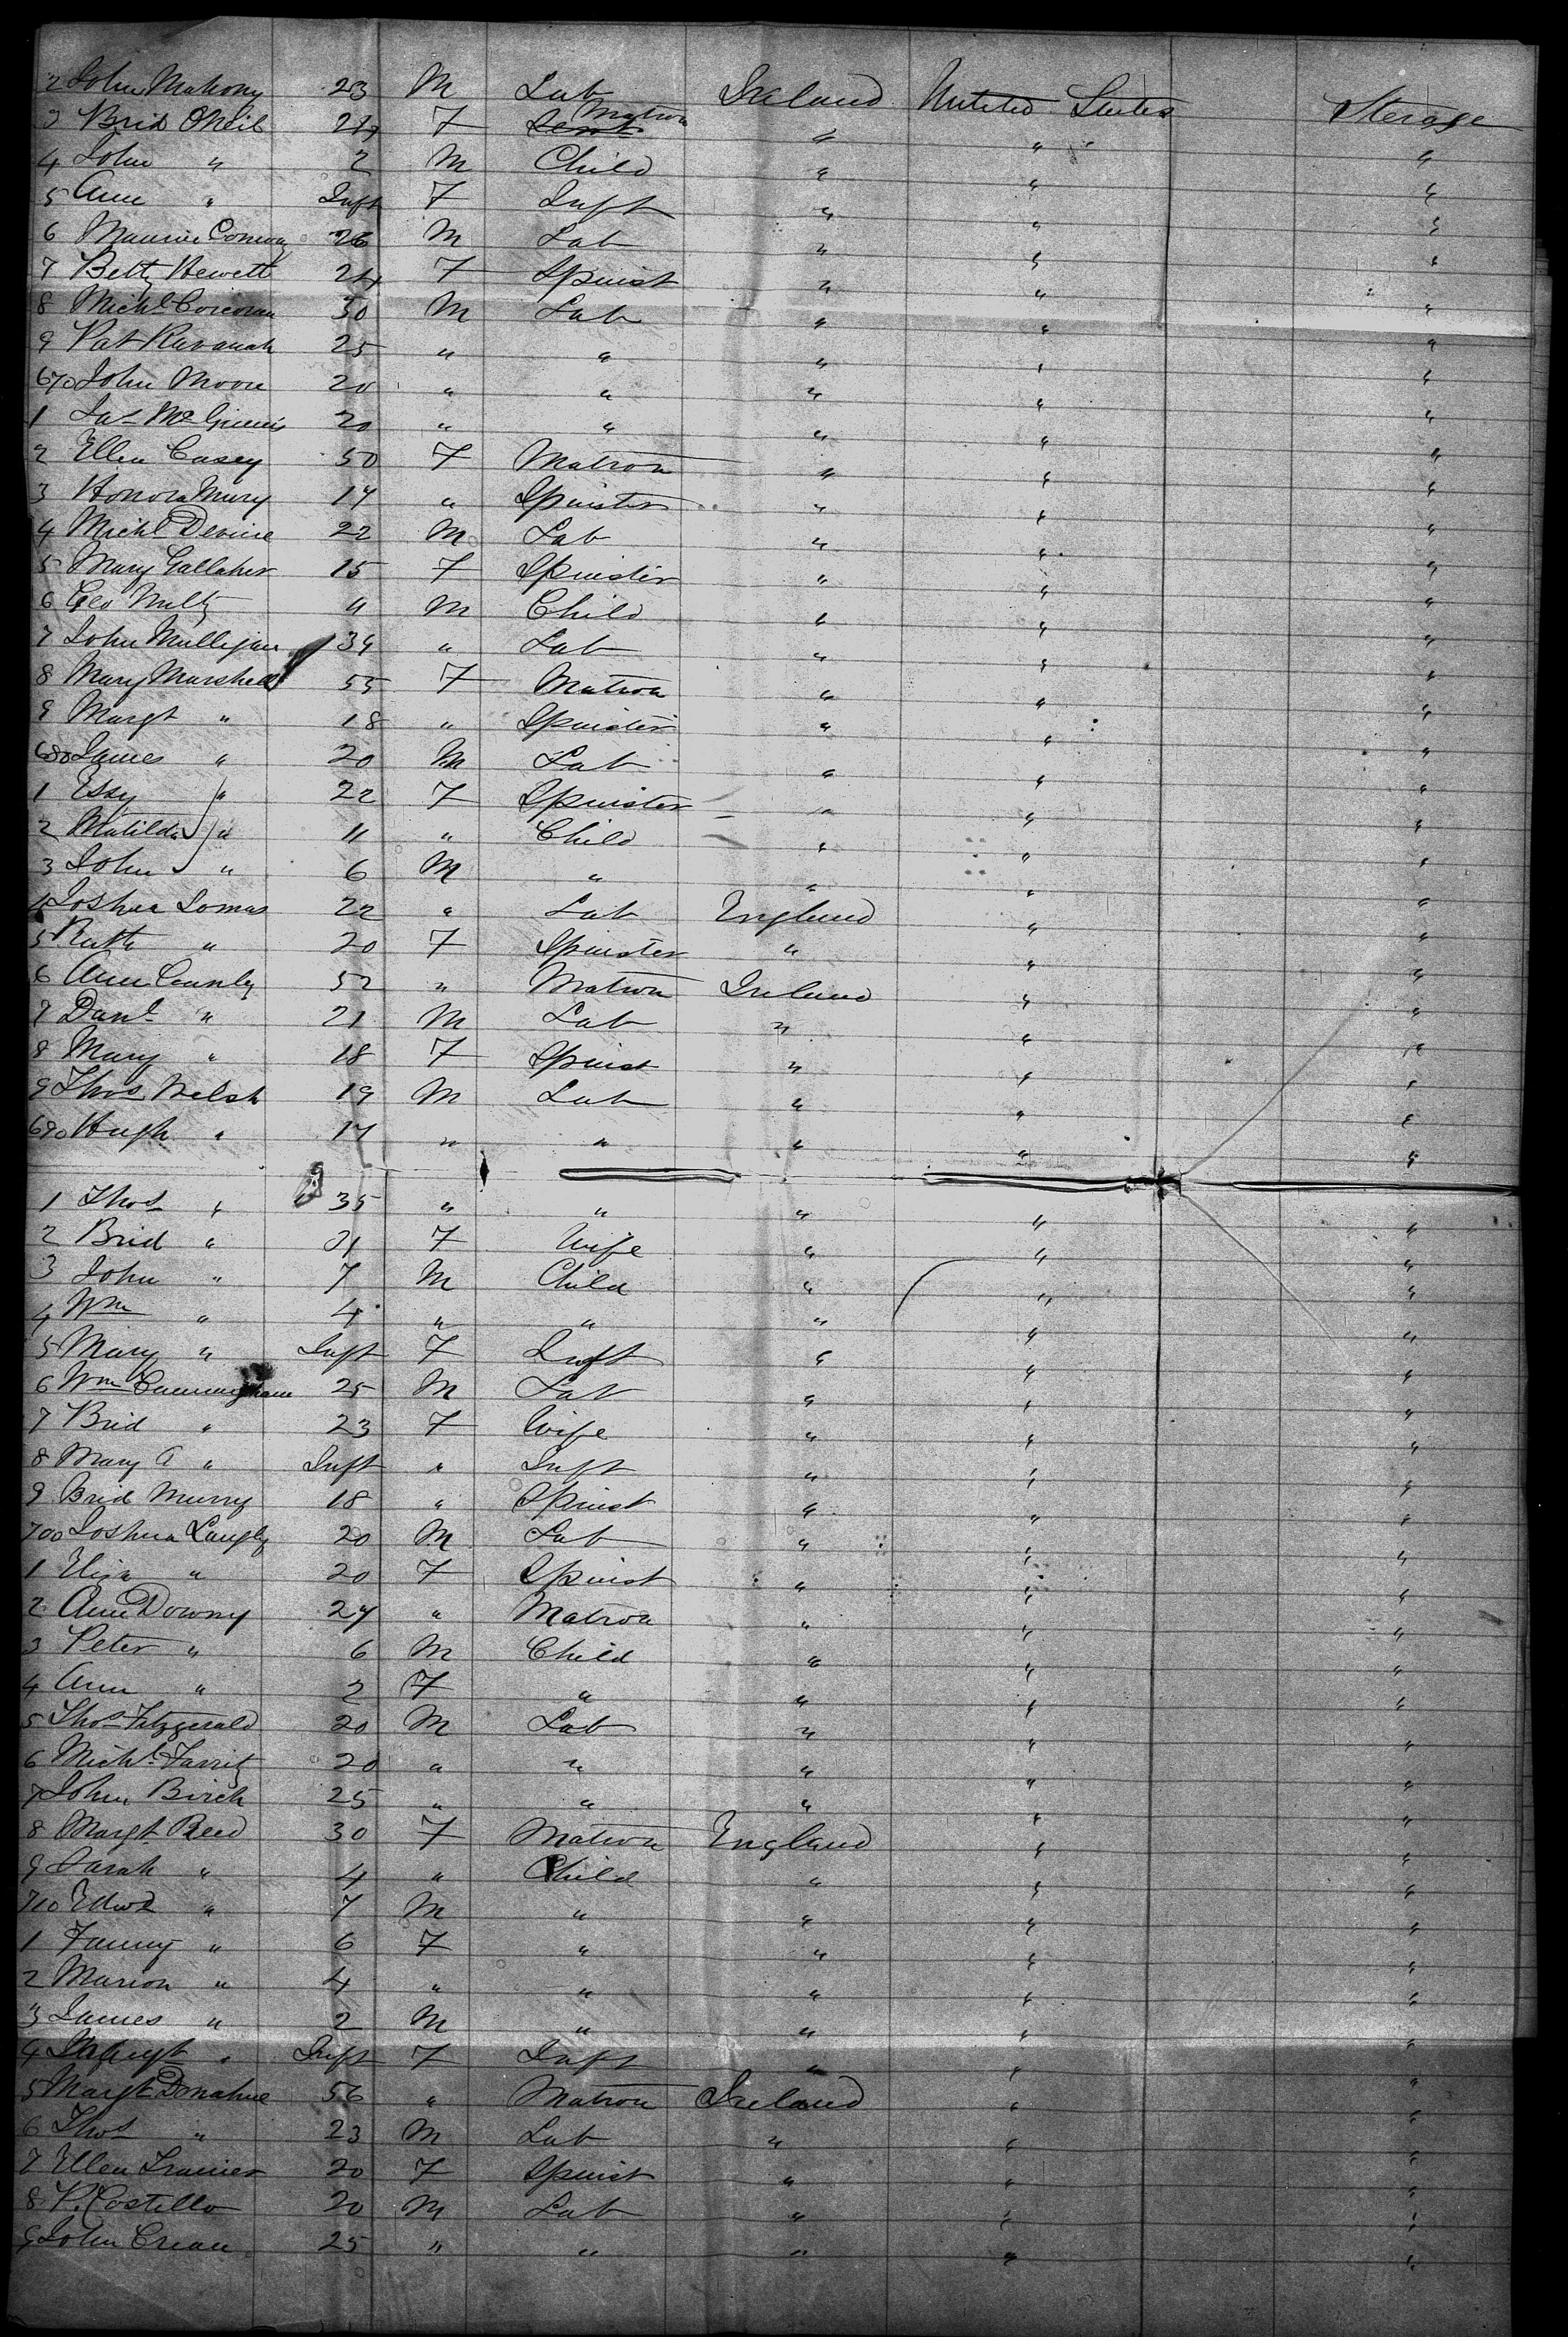 2 John Mahony 23 M Lab Ireland United States Sterage
3 Brid ONeil 24 F Matron " " "
4 John " 2 M Child " " "
5 Ann " Inft F Inft " " "
6 Maurice Conway 26 M Lab " " "
7 Betty Hewett 24 F Spinst " " "
8 Michl Corcoran 30 M Lab " " "
9 Pat Kavanah 25 " " " " "
670 John Moore 20 " " " " "
1 Jas McGinnis 20 " " " " "
2 Ellen Casey 50 F Matron " " "
3 Honora Mury 17 " Spinster " " "
4 Michl Devine 22 M Lab " " "
5 Mary Gallaher 15 F Spinster " " "
6 Geo 9 M Child " " "
7 John Mulligan 34 " Lab " " "
8 Mary Marshell 55 F Matron " " "
9 Margt " 18 " Spinster " " "
680 James " 20 M Lab " " "
1 Essy " 22 F Spinster " " "
2 Matilda " 11 " Child " " "
3 John " 6 M " " " "
4 Joshua Lomas 22 " Lab England " "
5 Ruth " 20 F Spinster " " "
6 Ann 52 " Matron Ireland " "
7 Danl " 21 M Lab " " "
8 Mary " 18 F Spinst " " "
9 Thos Welsh 19 M Lab " " "
690 Hugh " 17 " " " " "
1 Thos " 35 " " " " "
2 Brid " 31 F Wife " " "
3 John " 7 M Child " " "
4 Wm " 4 " " " " "
5 Mary " Inft F Inft " " "
6 Wm Cunningham 25 M Lab " " "
7 Brid " 23 F Wife " " "
8 Mary A " Inft " Inft " " "
9 Brid Murry 18 " Spinst " " "
700 Joshua Langly 20 M Lab " " "
1 Eliza " 20 F Spinst " " "
2 Ann Downy 27 " Matron " " "
3 Peter " 6 M Child " " "
4 Ann " 2 F " " " "
5 Thos Fitzgerald 20 M Lab " " "
6 Michl 20 " " " " "
7 John Birch 25 " " " " "
8 Margt Reed 30 F Matron England " "
9 Sarah " 4 " Child " " "
710 Edwd " 7 M " " " "
1 Fanny " 6 F " " " "
2 Marion " 4 " " " " "
3 James " 2 M " " " "
4 Margt " Inft F Inft " " "
5 Margt Donahue 56 " Matron Ireland " "
6 Thos " 23 M Lab " " "
7 Ellen 20 F Spinst " " "
8 P. Costello 20 M Lab " " "
9 John Crean 25 " " " " "